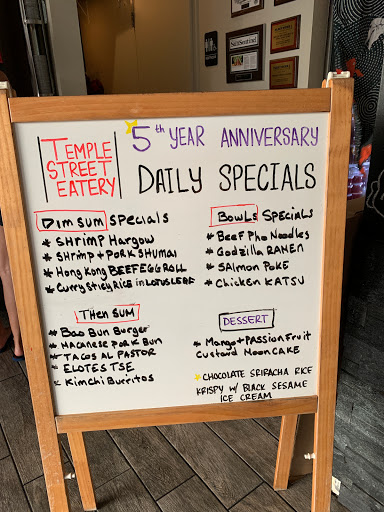 SunSentinel
TEMPLE
STREET
EATERY
5th YEAR ANNIVERSARY
DAILY SPECIALS
Dim Sum Specials
* SHRIMP HARGOW
* SHRIMP + PORK SHUMAI
* Hong Kong BEEF EGG ROLL
* Curry Sticky Rice in LOTUS LEAF
Then SUM
* Bao Bun Burger
* MACANESE PORK Bun
* TACOS AL PASTOR
* ELOTES TSE
* Kimchi Burritos
BOWLs SPECIALS
* BEEF Pho Noodles
* Godzilla RAMEN
* SAlmon POKE
* Chicken KATSU
DESSERT
* Mango + PASSION FRUIT
Custard MOON CAKE
* CHOCOLATE SRIRACHA RICE
KRISPY W/ BLACK SESAME
ICE CREAM